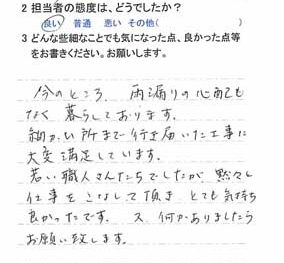 2 担当者の態度は、どうでしたか？
良い　普通　悪い　その他(　　　　　　)
3 どんな些細なことでも気になった点、良かった点等
をお書きください。お願いします。
今のところ、雨漏りの心配も
なく暮らしております。
細かい所まで行き届いた工事に
大変満足しています。
若い職人さんたちでしたが、黙々と
仕事をこなして頂き、とても気持ち
良かったです。　又、何かありましたら
お願い致します。